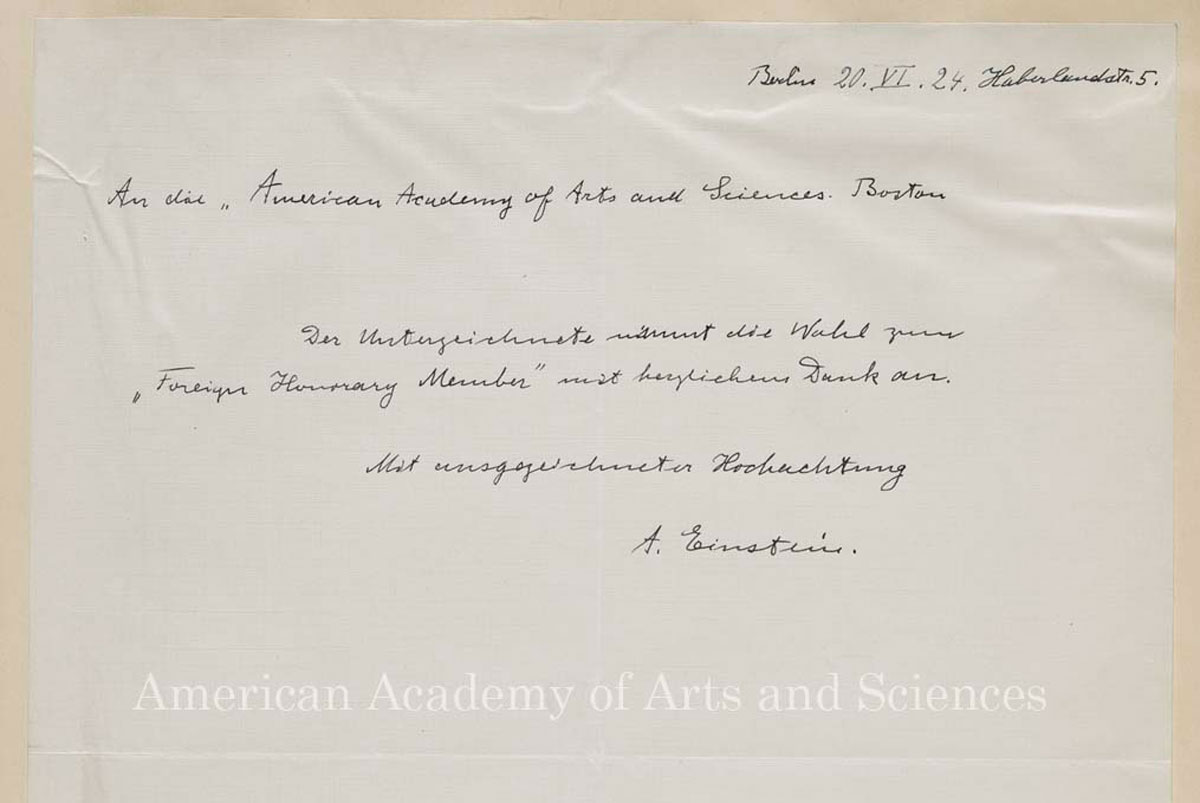 Berlin 20. VI. 24. Haberlandstr. 5.
An die „American Academy of Arts and Sciences. Boston
Der Unterzeichnete nimmt die Wahl zum
„Foreign Honorary Member" mit herzlichem Dank an.
Mit ausgezeichneter Hochachtung
A. Einstein.
American Academy of Arts and Sciences